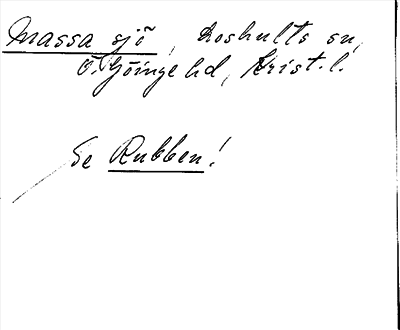 Massa sjö, Loshults sn,
Ö. Göinge hd, Krist. l.
Se Rubben!